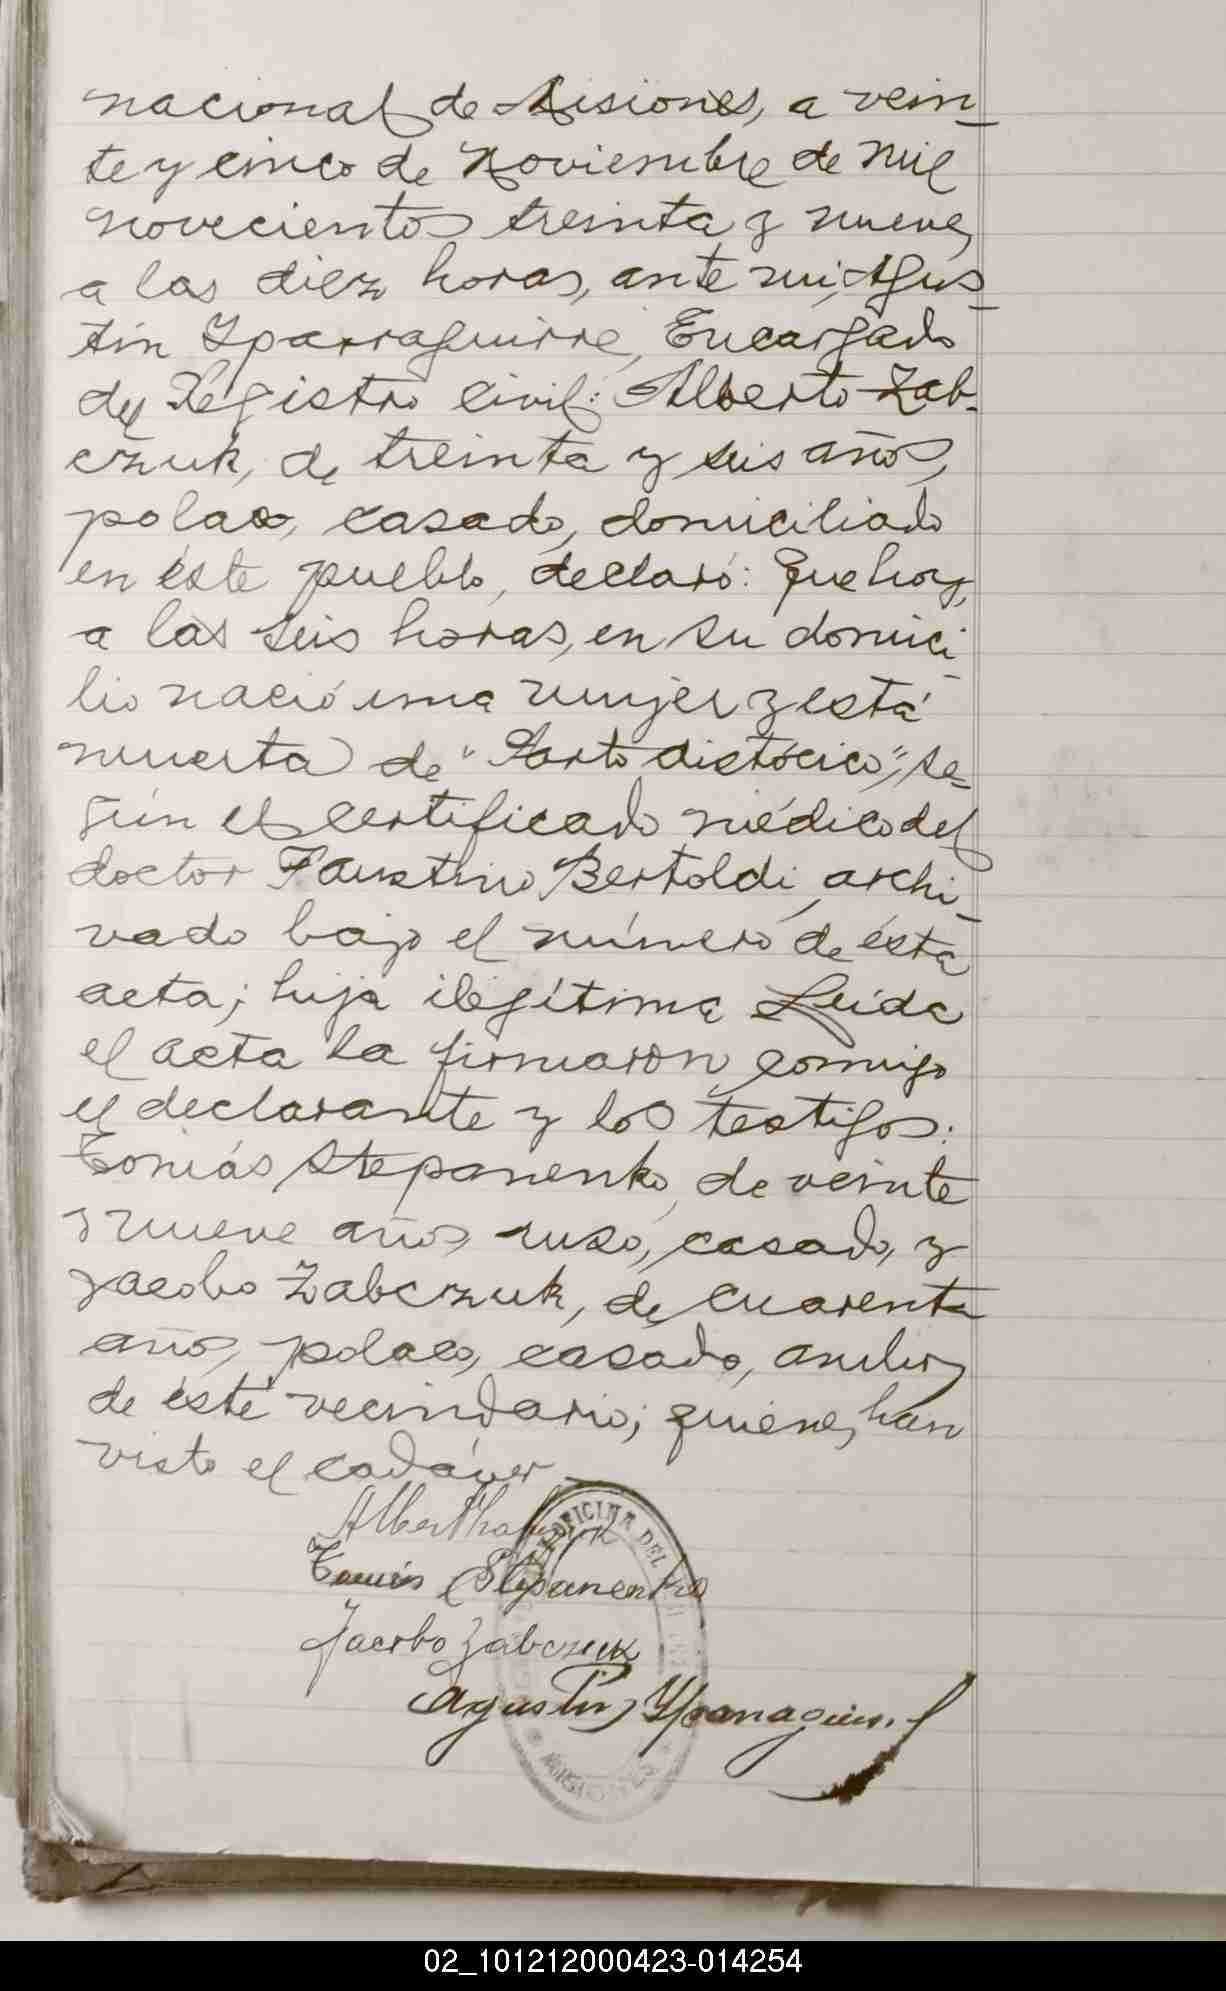 nacional de Misiones, a vein-
te y cinco de Noviembre de mil
novecientos treinta y nueve,
a las diez horas, ante mi, Agus-
tín Yparraguirre, Encargado
del Registro Civil: Alberto Zab-
czuk, de treinta y seis años,
polaco, casado, domiciliado
en éste pueblo, declaró: Que hoy,
a las seis horas, en su domici-
lio nació una mujer y está
muerta de "Parto distócico", se-
gún el certificado médico del
doctor Faustino Bertoldi, archi-
vado bajo el número de ésta
acta; hija ilegítima Leída
el acta la firmaron conmigo
el declarante y los testigos:
Tomás Stepanenko, de veinte
y nueve años, ruso, casado, y
Jacobo Zabczuk, de cuarenta
años, polaco, casado, ambos
de éste vecindario; quienes han
visto el cadáver
Albert
Tomás Stepanenko
Jacobo Zabczuk
OFICINA DEL
Agustin Yparraguirre
MISIONES
02_101212000423-014254